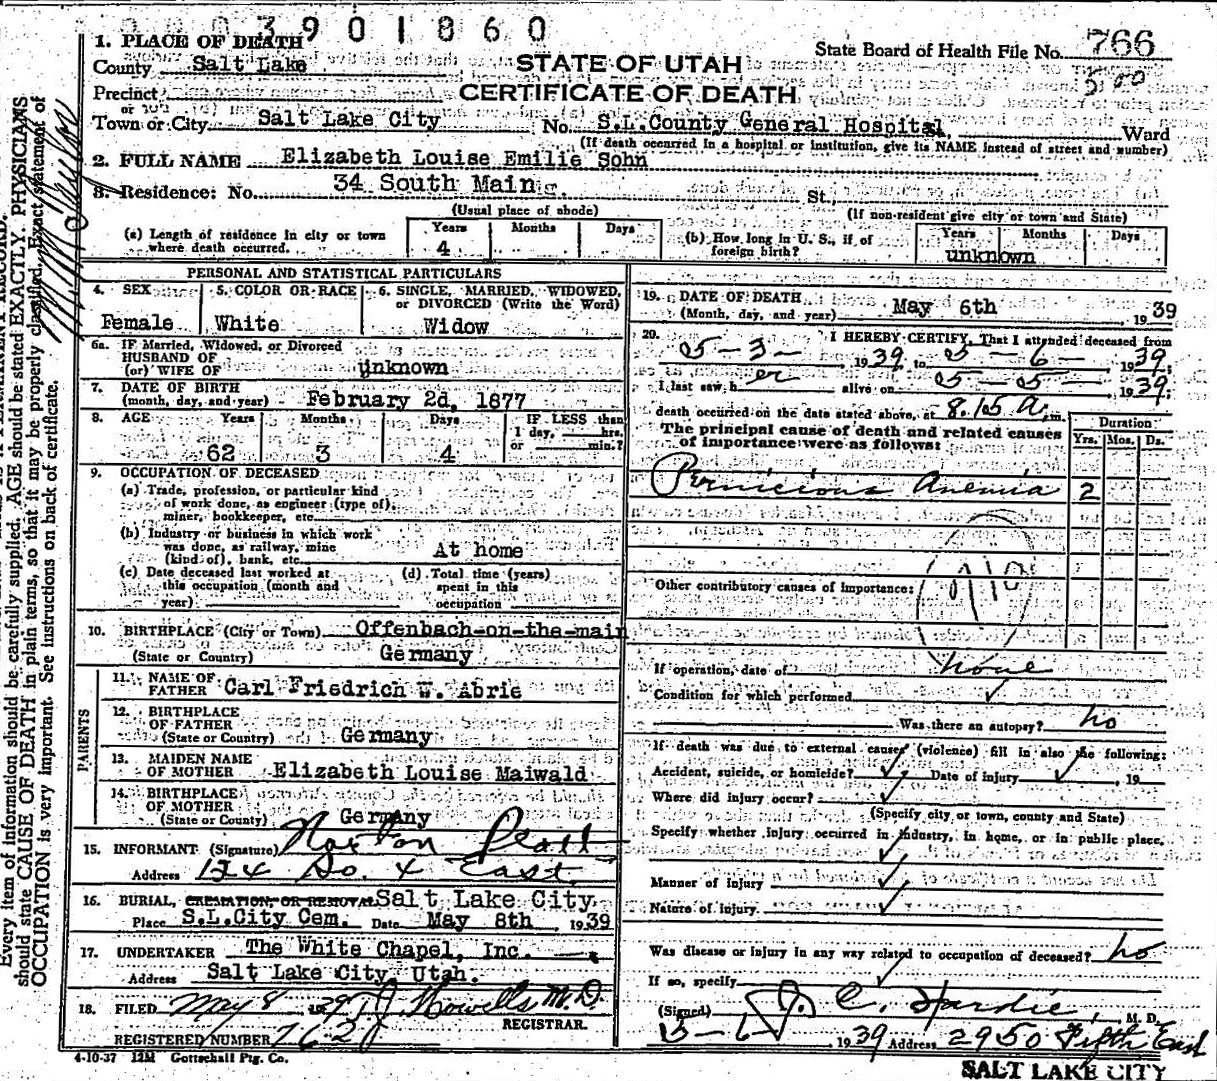 3901860
1. PLACE OF DEATH
State Board of Health File No. 766
County Salt Lake
STATE OF UTAH
Precinct
CERTIFICATE OF DEATH
or
Town or City Salt Lake City No. S.L.County General Hospital Ward
(If death occurred in a hospital or institution, give its NAME instead of street and number)
2. FULL NAME Elizabeth Louise Emilie Sohn
3. Residence: No. 34 South Main St.,
(Usual place of abode) (If non-resident give city or town and State)
(a) Length of residence in city or town where death occurred. Years 4 Months Days
(b) How long in U. S., if of foreign birth? Years unknown Months Days
PERSONAL AND STATISTICAL PARTICULARS
4. SEX Female
5. COLOR OR RACE White
6. SINGLE, MARRIED, WIDOWED, or DIVORCED (Write the Word) Widow
6a. IF Married, Widowed, or Divorced
HUSBAND OF
(or) WIFE OF unknown
7. DATE OF BIRTH
(month, day, and year) February 2d, 1877
8. AGE Years 62 Months 3 Days 4 IF LESS than 1 day, hrs. or min.?
9. OCCUPATION OF DECEASED
(a) Trade, profession, or particular kind
of work done, as engineer (type of),
miner, bookkeeper, etc.
(b) Industry or business in which work
was done, as railway, mine
(kind of), bank, etc. At home
(c) Date deceased last worked at
this occupation (month and
year)
(d) Total time (years)
spent in this
occupation
10. BIRTHPLACE (City or Town) Offenbach-on-the-main
(State or Country) Germany
PARENTS
11. NAME OF
FATHER Carl Friedrich W. Abrie
12. BIRTHPLACE
OF FATHER
(State or Country) Germany
13. MAIDEN NAME
OF MOTHER Elizabeth Louise Maiwald
14. BIRTHPLACE
OF MOTHER
(State or County) Germany
15. INFORMANT (Signature)
Address 124 So. 4 East
16. BURIAL, CREMATION, OR REMOVAL Salt Lake City
Place S.L.City Cem. Date May 8th 1939
17. UNDERTAKER The White Chapel, Inc.
Address Salt Lake City, Utah.
18. FILED May 8 1939 T.J. Howells M.D.
REGISTRAR.
REGISTERED NUMBER 762
4-10-37 12M Gottschall Ptg. Co.
19. DATE OF DEATH
(Month, day, and year) May 6th, 1939
20. I HEREBY CERTIFY, That I attended deceased from
5-3- 1939, to 5-6- 1939;
I last saw her alive on 5-5- 1939;
death occurred on the date stated above, at 8.15 A. m.
The principal cause of death and related causes
of importance were as follows:
Duration
Yrs. Mos. Ds.
Pernicious Anemia 2
Other contributory causes of importance:
If operation, date of none
Condition for which performed
Was there an autopsy? no
If death was due to external causes (violence) fill in also the following:
Accident, suicide, or homicide? Date of injury 19
Where did injury occur?
(Specify city or town, county and State)
Specify whether injury occurred in industry, in home, or in public place.
Manner of injury
Nature of injury
Was disease or injury in any way related to occupation of deceased? no
If so, specify
(Signed) J. C. Hardie, M. D.
5-6 1939 Address 2950 Fifth East
SALT LAKE CITY
Every item of information should be carefully supplied. AGE should be stated EXACTLY. PHYSICIANS
should state CAUSE OF DEATH in plain terms, so that it may be properly classified. Exact statement of
OCCUPATION is very important. See instructions on back of certificate.